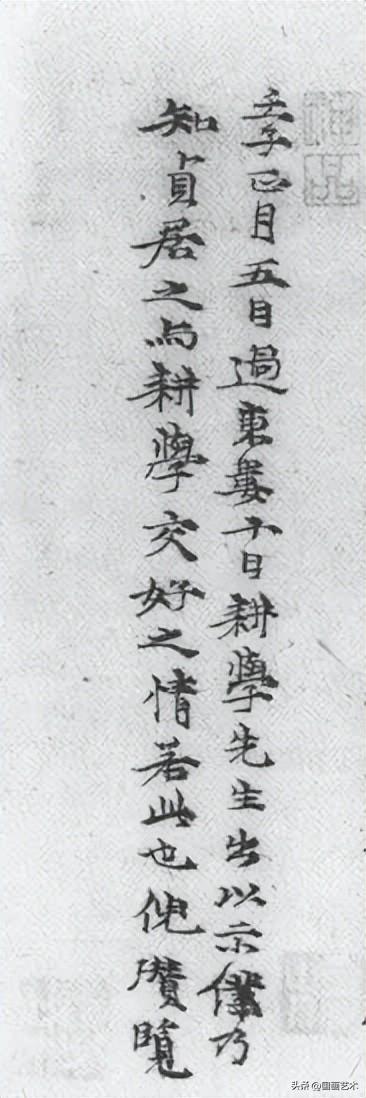 壬子正月五日過東婁十日耕學先生出以示僕乃
知貞居之與耕學交好之情若此也倪瓚覽
头条 @国画艺术